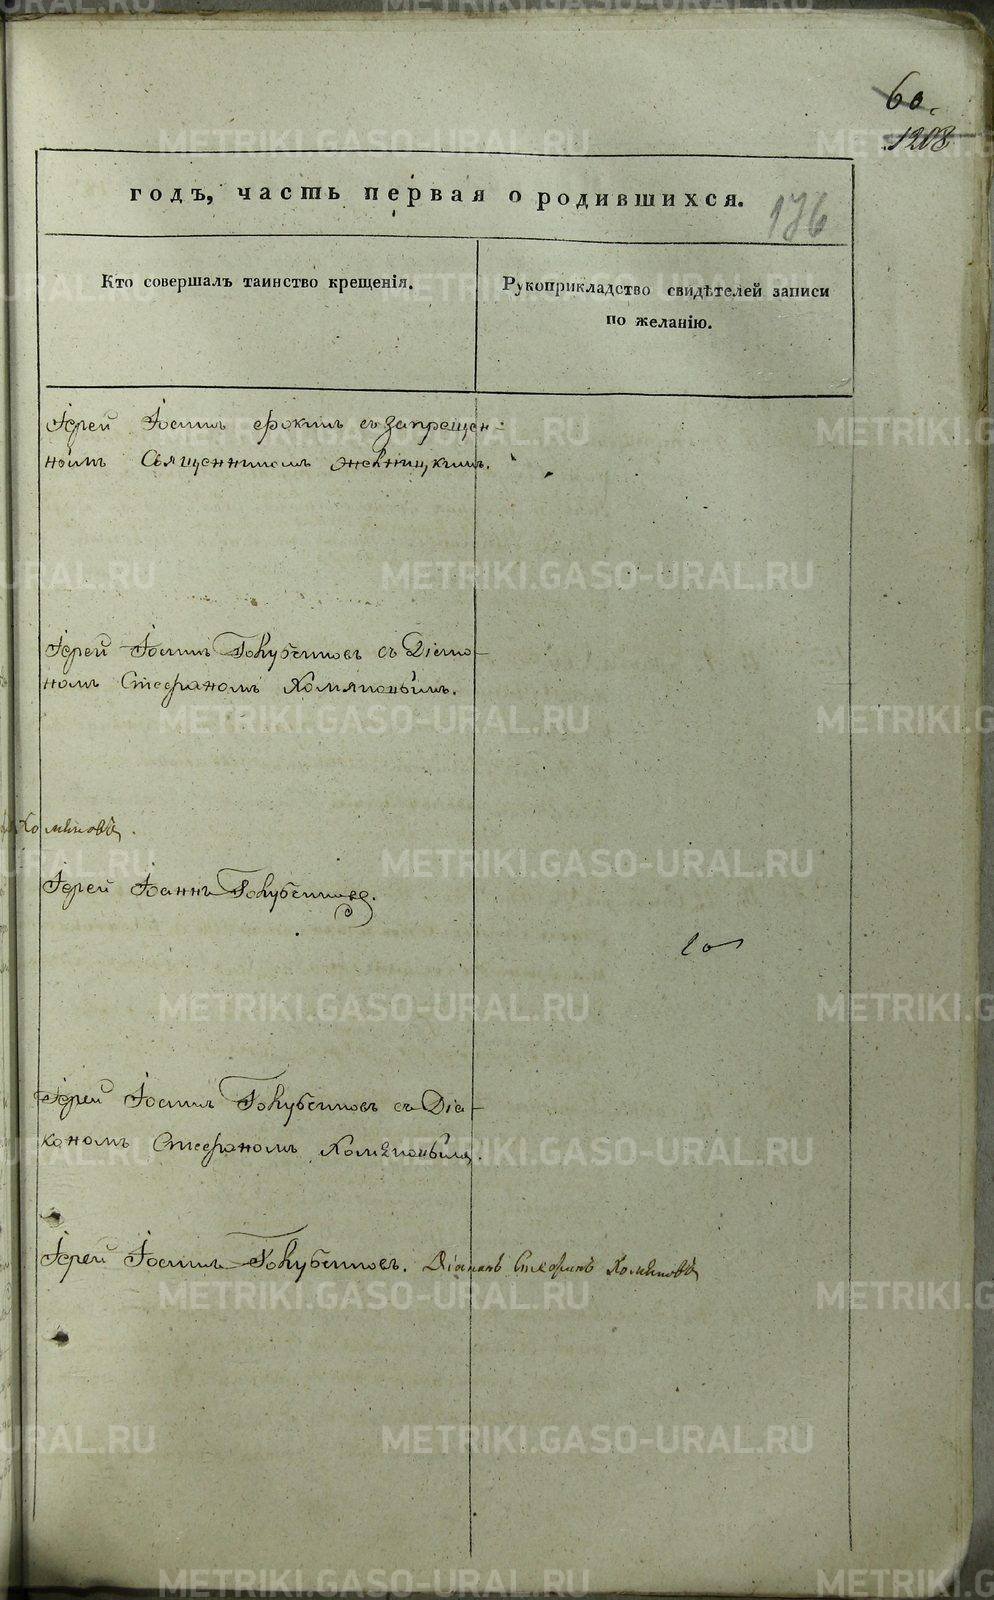 60.
1208
годъ, часть первая о родившихся.
176
Кто совершалъ таинство крещенія.
Рукоприкладство свидѣтелей записи
по желанію.
Іерей Іоаннъ Фокинъ съ запрещен-
нымъ Священникомъ
Іерей Іоаннъ Голубчиковъ съ Діако-
номъ Стефаномъ Хомяковымъ.
Хомяковъ.
Іерей Іоаннъ Голубчиковъ.
Іерей Іоаннъ Голубчиковъ съ Діа-
кономъ Стефаномъ Хомяковымъ.
Іерей Іоаннъ Голубчиковъ. Діаконъ Стефанъ Хомяковъ
METRIKI.GASO-URAL.RU